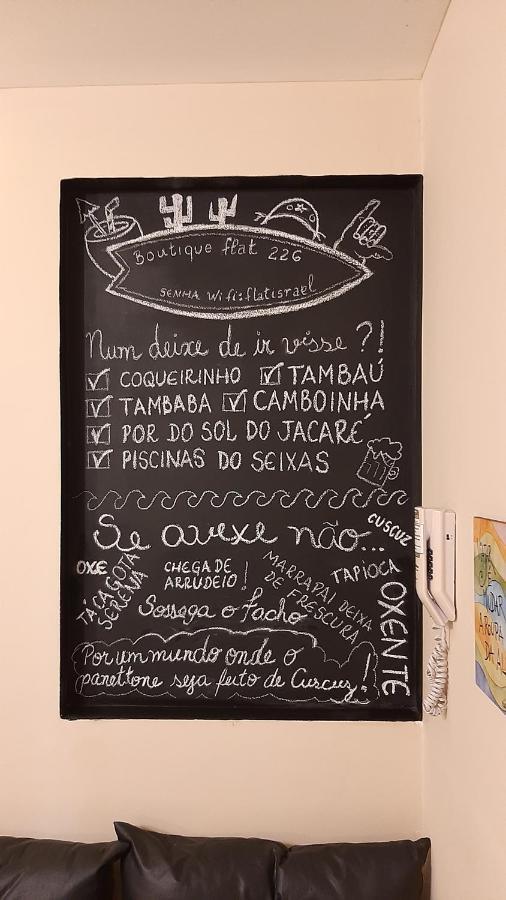 Boutique flat 226
SENHA Wifi:flatisrael
Num deixe de ir visse?!
COQUEIRINHO TAMBAÚ
TAMBABA CAMBOINHA
POR DO SOL DO JACARÉ
PISCINAS DO SEIXAS
Se avexe não...
CUSCUZ
OXE
TÁ CA GOTA
SERENA
CHEGA DE
ARRUDEIO!
MARRAPAI DEIXA
DE FRESCURA
TAPIOCA
OXENTE
Sossega o facho
Por um mundo onde o
panettone seja feito de Cuscuz!